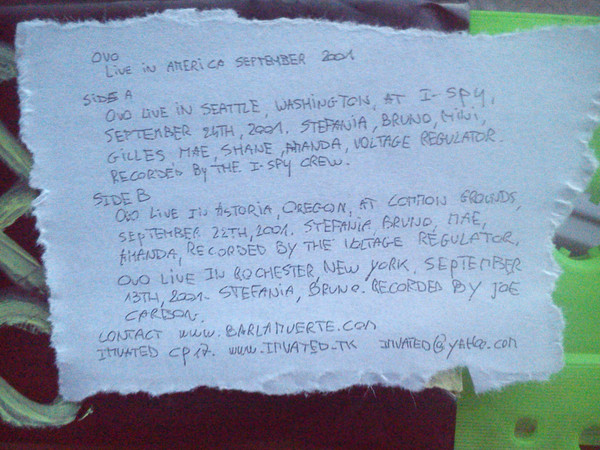 OVO
LIVE IN AMERICA SEPTEMBER 2001
SIDE A
OVO LIVE IN SEATTLE, WASHINGTON, AT I-SPY,
SEPTEMBER 24TH, 2001. STEFANIA, BRUNO, MINI,
GILLES MAE, SHANE, AMANDA, VOLTAGE REGULATOR.
RECORDED BY THE I-SPY CREW.
SIDE B
OVO LIVE IN ASTORIA, OREGON, AT COMMON GROUNDS,
SEPTEMBER 22TH, 2001. STEFANIA, BRUNO, MAE,
AMANDA, RECORDED BY THE VOLTAGE REGULATOR,
OVO LIVE IN ROCHESTER, NEW YORK, SEPTEMBER
13TH, 2001. STEFANIA, BRUNO. RECORDED BY JOE
CARBON.
CONTACT WWW.BARLAMUERTE.COM
INVATED CP17. WWW.INVATED.TK INVATED@YAHOO.COM